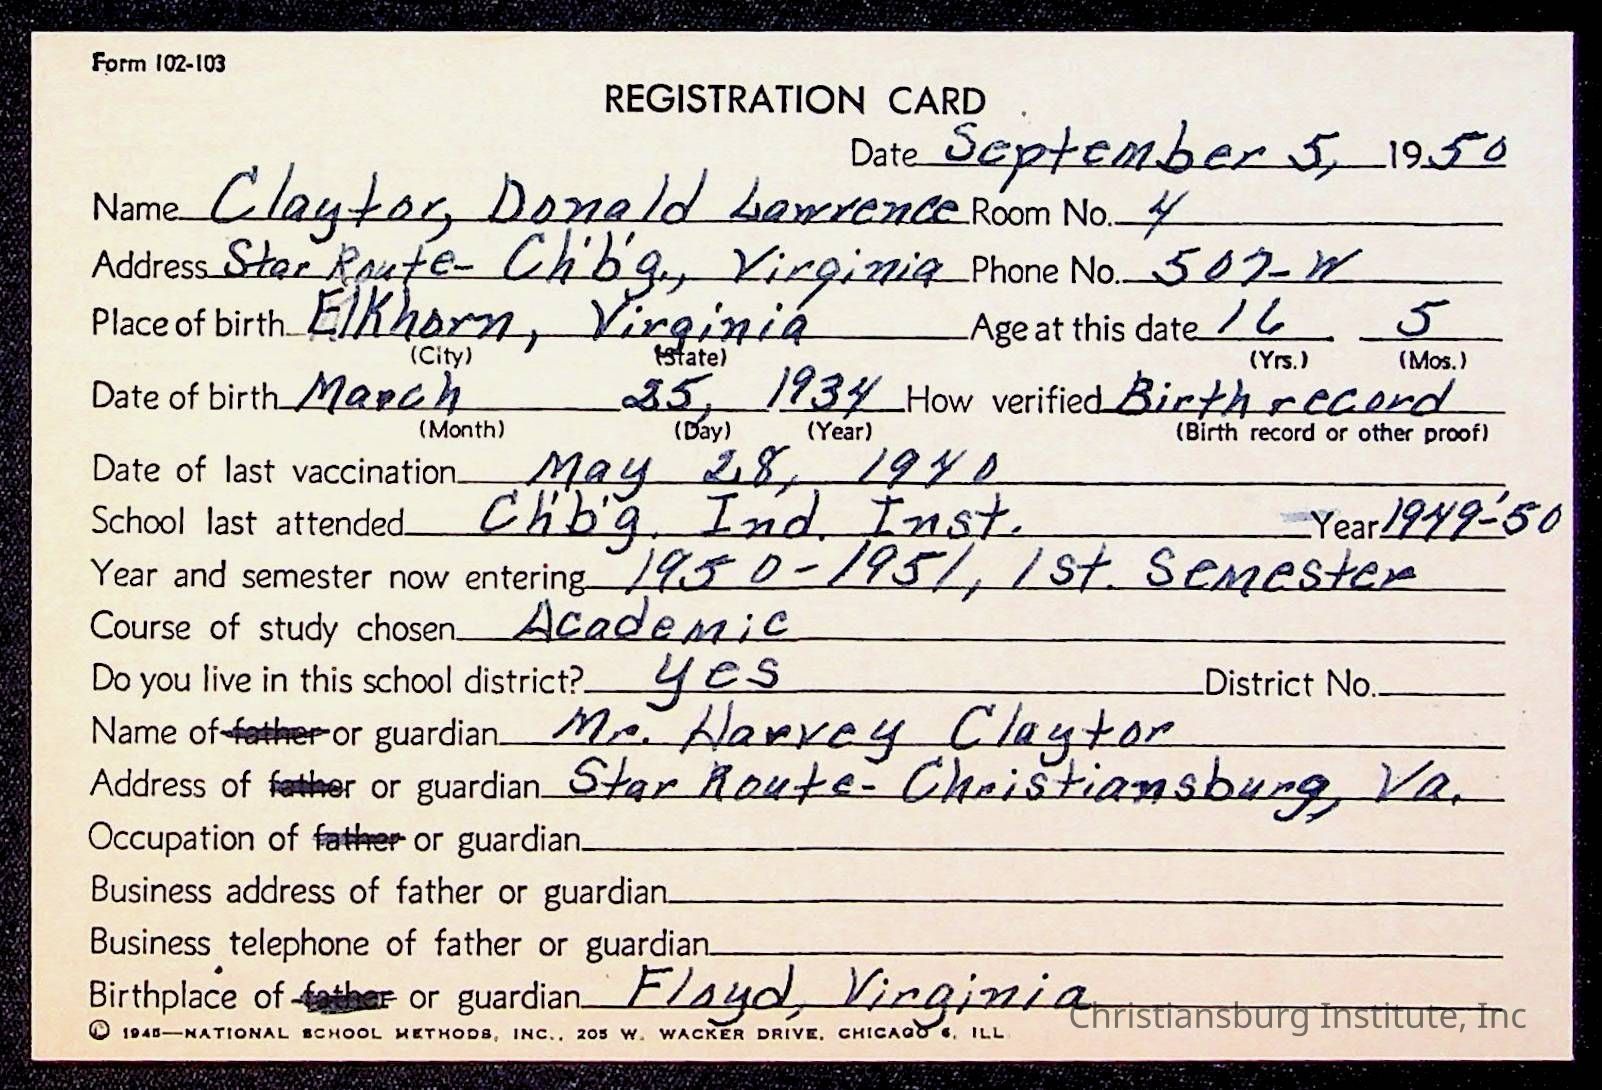 Form 102-103
REGISTRATION CARD
Date September 5, 1950
Name Claytor, Donald Lawrence Room No. 4
Address Star Route- Ch'b'g., Virginia Phone No. 507-W
Place of birth Elkhorn, Virginia Age at this date 16 5
(City) (State) (Yrs.) (Mos.)
Date of birth March 25, 1934 How verified Birth record
(Month) (Day) (Year) (Birth record or other proof)
Date of last vaccination May 28, 1940
School last attended Ch'b'g. Ind. Inst. Year 1949-'50
Year and semester now entering 1950-1951, 1st. Semester
Course of study chosen Academic
Do you live in this school district? yes District No.
Name of father or guardian Mr. Harvey Claytor
Address of father or guardian Star Route- Christiansburg, Va.
Occupation of father or guardian
Business address of father or guardian
Business telephone of father or guardian
Birthplace of father or guardian Floyd, Virginia
Christiansburg Institute, Inc
© 1945—NATIONAL SCHOOL METHODS, INC., 205 W. WACKER DRIVE, CHICAGO 6, ILL.